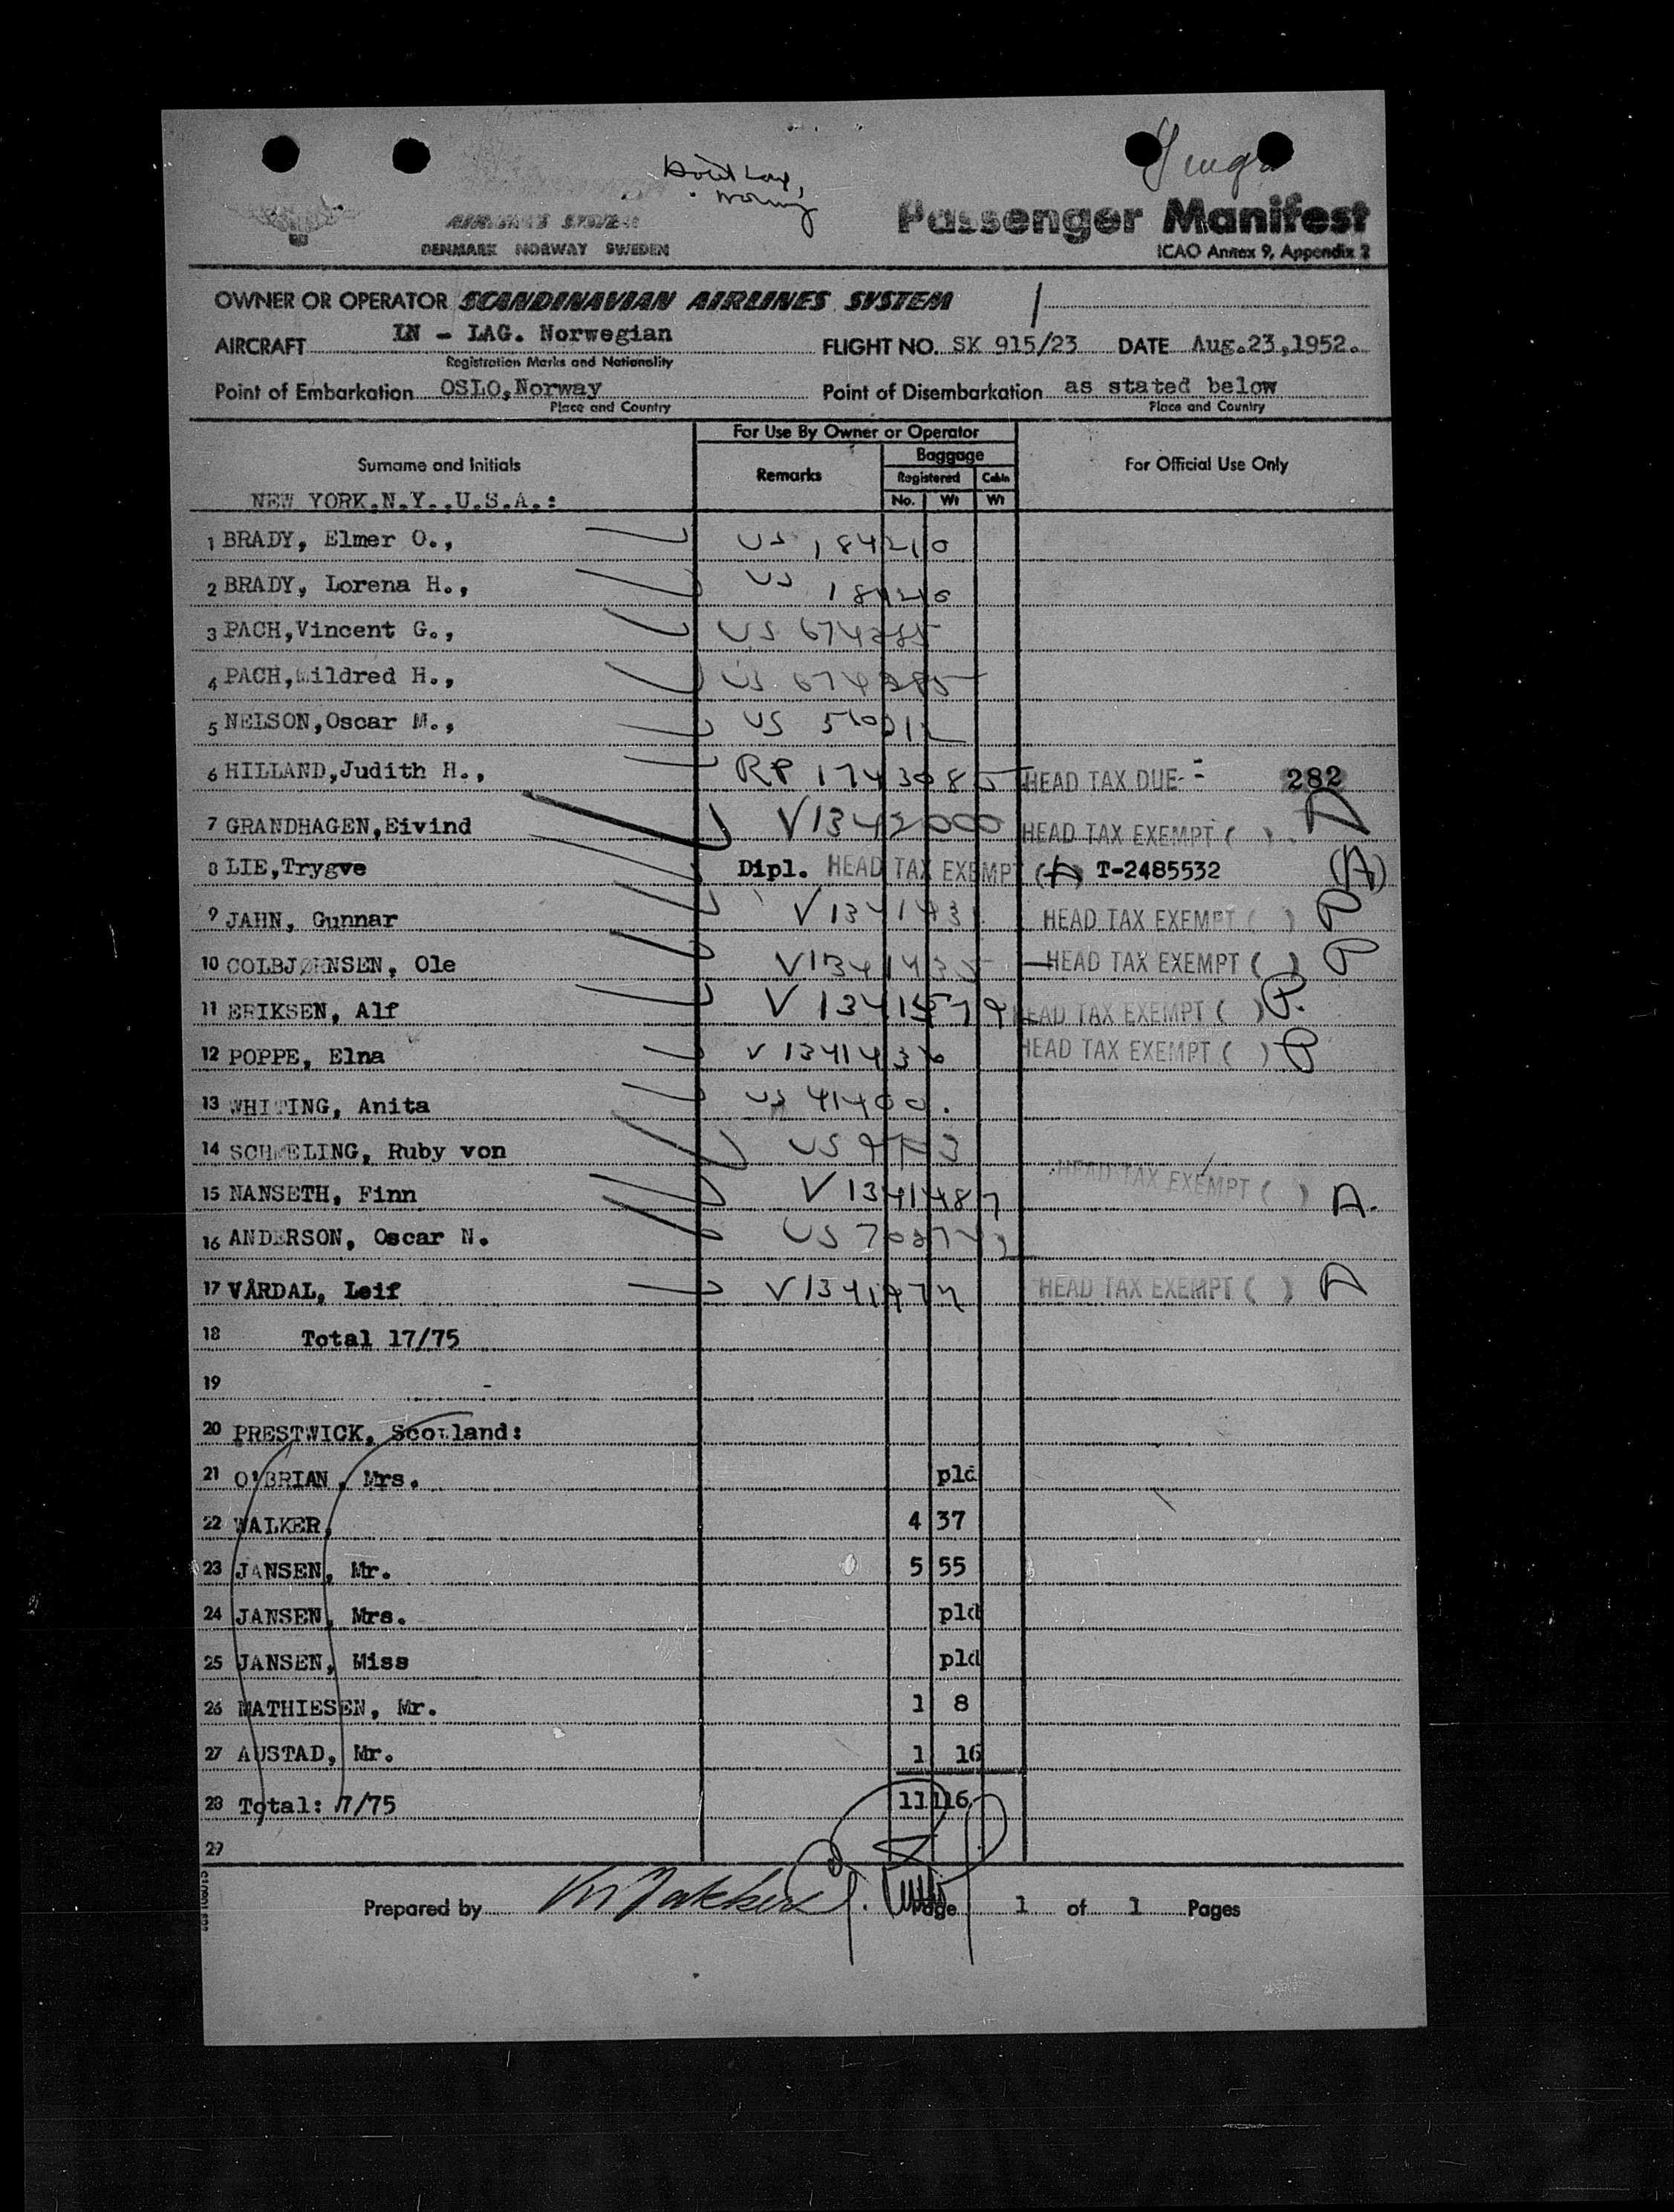 AIRLINES SYSTEM
DENMARK NORWAY SWEDEN
Passenger Manifest
ICAO Annex 9, Appendix 2
OWNER OR OPERATOR SCANDINAVIAN AIRLINES SYSTEM
AIRCRAFT LN - LAG. Norwegian FLIGHT NO. SK 915/23 DATE Aug.23,1952.
Registration Marks and Nationality
Point of Embarkation OSLO,Norway Point of Disembarkation as stated below
Place and Country Place and Country
For Use By Owner or Operator
Surname and Initials Remarks Baggage For Official Use Only
Registered Cabin
NEW YORK.N.Y.,U.S.A.: No. Wt Wt
1 BRADY, Elmer O., US 184210
2 BRADY, Lorena H., US 184210
3 PACH,Vincent G., US 674285
4 PACH,Mildred H., US 674285
5 NELSON,Oscar M., US
6 HILLAND,Judith H., RP 1743085 HEAD TAX DUE-- 282
7 GRANDHAGEN,Eivind V1342000 HEAD TAX EXEMPT ( ) A
8 LIE,Trygve Dipl. HEAD TAX EXEMPT (A) T-2485532 (A)
9 JAHN, Gunnar V134143 HEAD TAX EXEMPT ( ) P
10 COLBJØRNSEN, Ole V1341435 HEAD TAX EXEMPT ( ) P
11 ERIKSEN, Alf V 1341579 HEAD TAX EXEMPT ( ) P.
12 POPPE, Elna V 1341436 HEAD TAX EXEMPT ( ) P
13 WHITING, Anita US 41400.
14 SCHMELING, Ruby von US
15 NANSETH, Finn V 1341487 HEAD TAX EXEMPT ( ) A.
16 ANDERSON, Oscar N. US
17 VÅRDAL, Leif V1341974 HEAD TAX EXEMPT ( ) A
18 Total 17/75
19
20 PRESTWICK, Scotland:
21 O'BRIAN, Mrs. pld
22 WALKER, 4 37
23 JANSEN, Mr. 5 55
24 JANSEN, Mrs. pld
25 JANSEN, Miss pld
26 MATHIESEN, Mr. 1 8
27 AUSTAD, Mr. 1 16
28 Total: 7/75 11 116
29
Prepared by Page 1 of 1 Pages